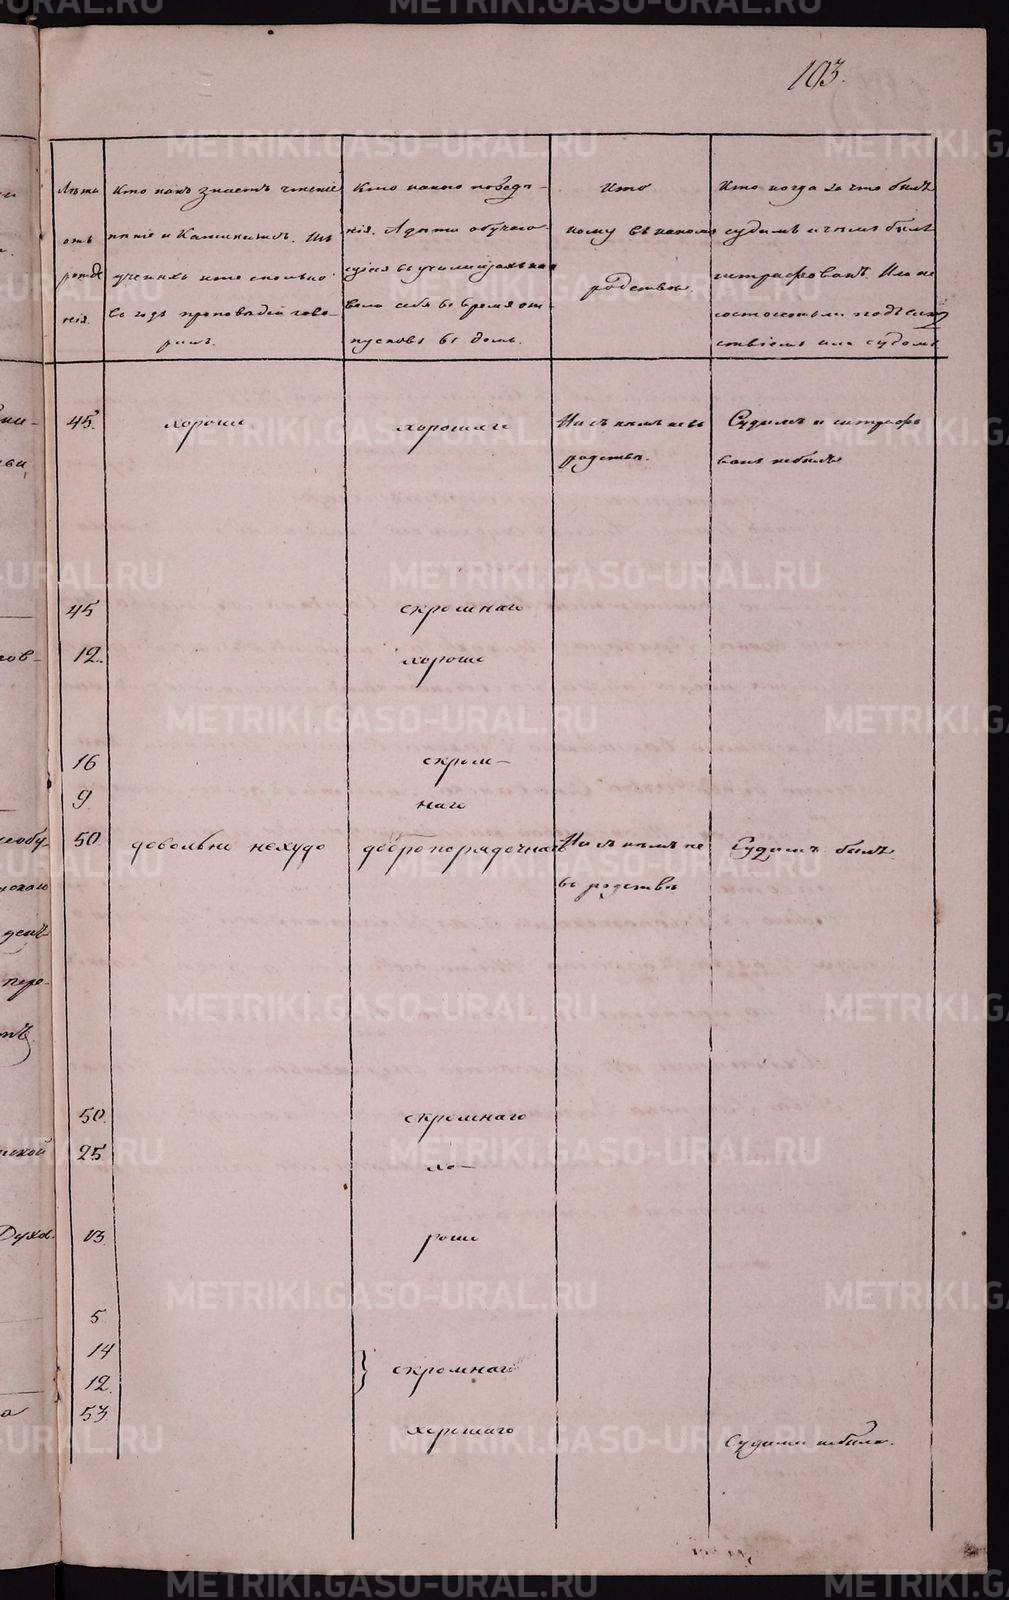 103.
Лѣта
отъ
рожде
нія.
Кто какъ знаетъ чтеніе
пѣніе и Катихизисъ. Изъ
ученыхъ кто сколько
въ годъ проповѣдей гово-
рилъ.
Кто какого поведе-
нія. А дѣти обучаю-
щіяся въ училищахъ како
вело себя во время от-
пусковъ въ домъ.
Кто
кому въ какомъ
родствѣ.
Кто когда за что былъ
судимъ и чѣмъ былъ
штрафованъ. Или не
состоитъ ли подъ слѣд
ствіемъ или судомъ
45. хорошо хорошаго Ни съ кѣмъ не въ Судимъ и штрафо
родствѣ. ванъ небылъ
45 скромнаго
12. хорошо
16 скром-
9. наго
50. довольно нехудо добропорядочнаго Ни съ кѣмъ не Судимъ былъ.
въ родствѣ
50. скромнаго
25 хо-
13. рошо
5
14
12. } скромнаго
53. хорошаго Судима небыла.
METRIKI.GASO-URAL.RU